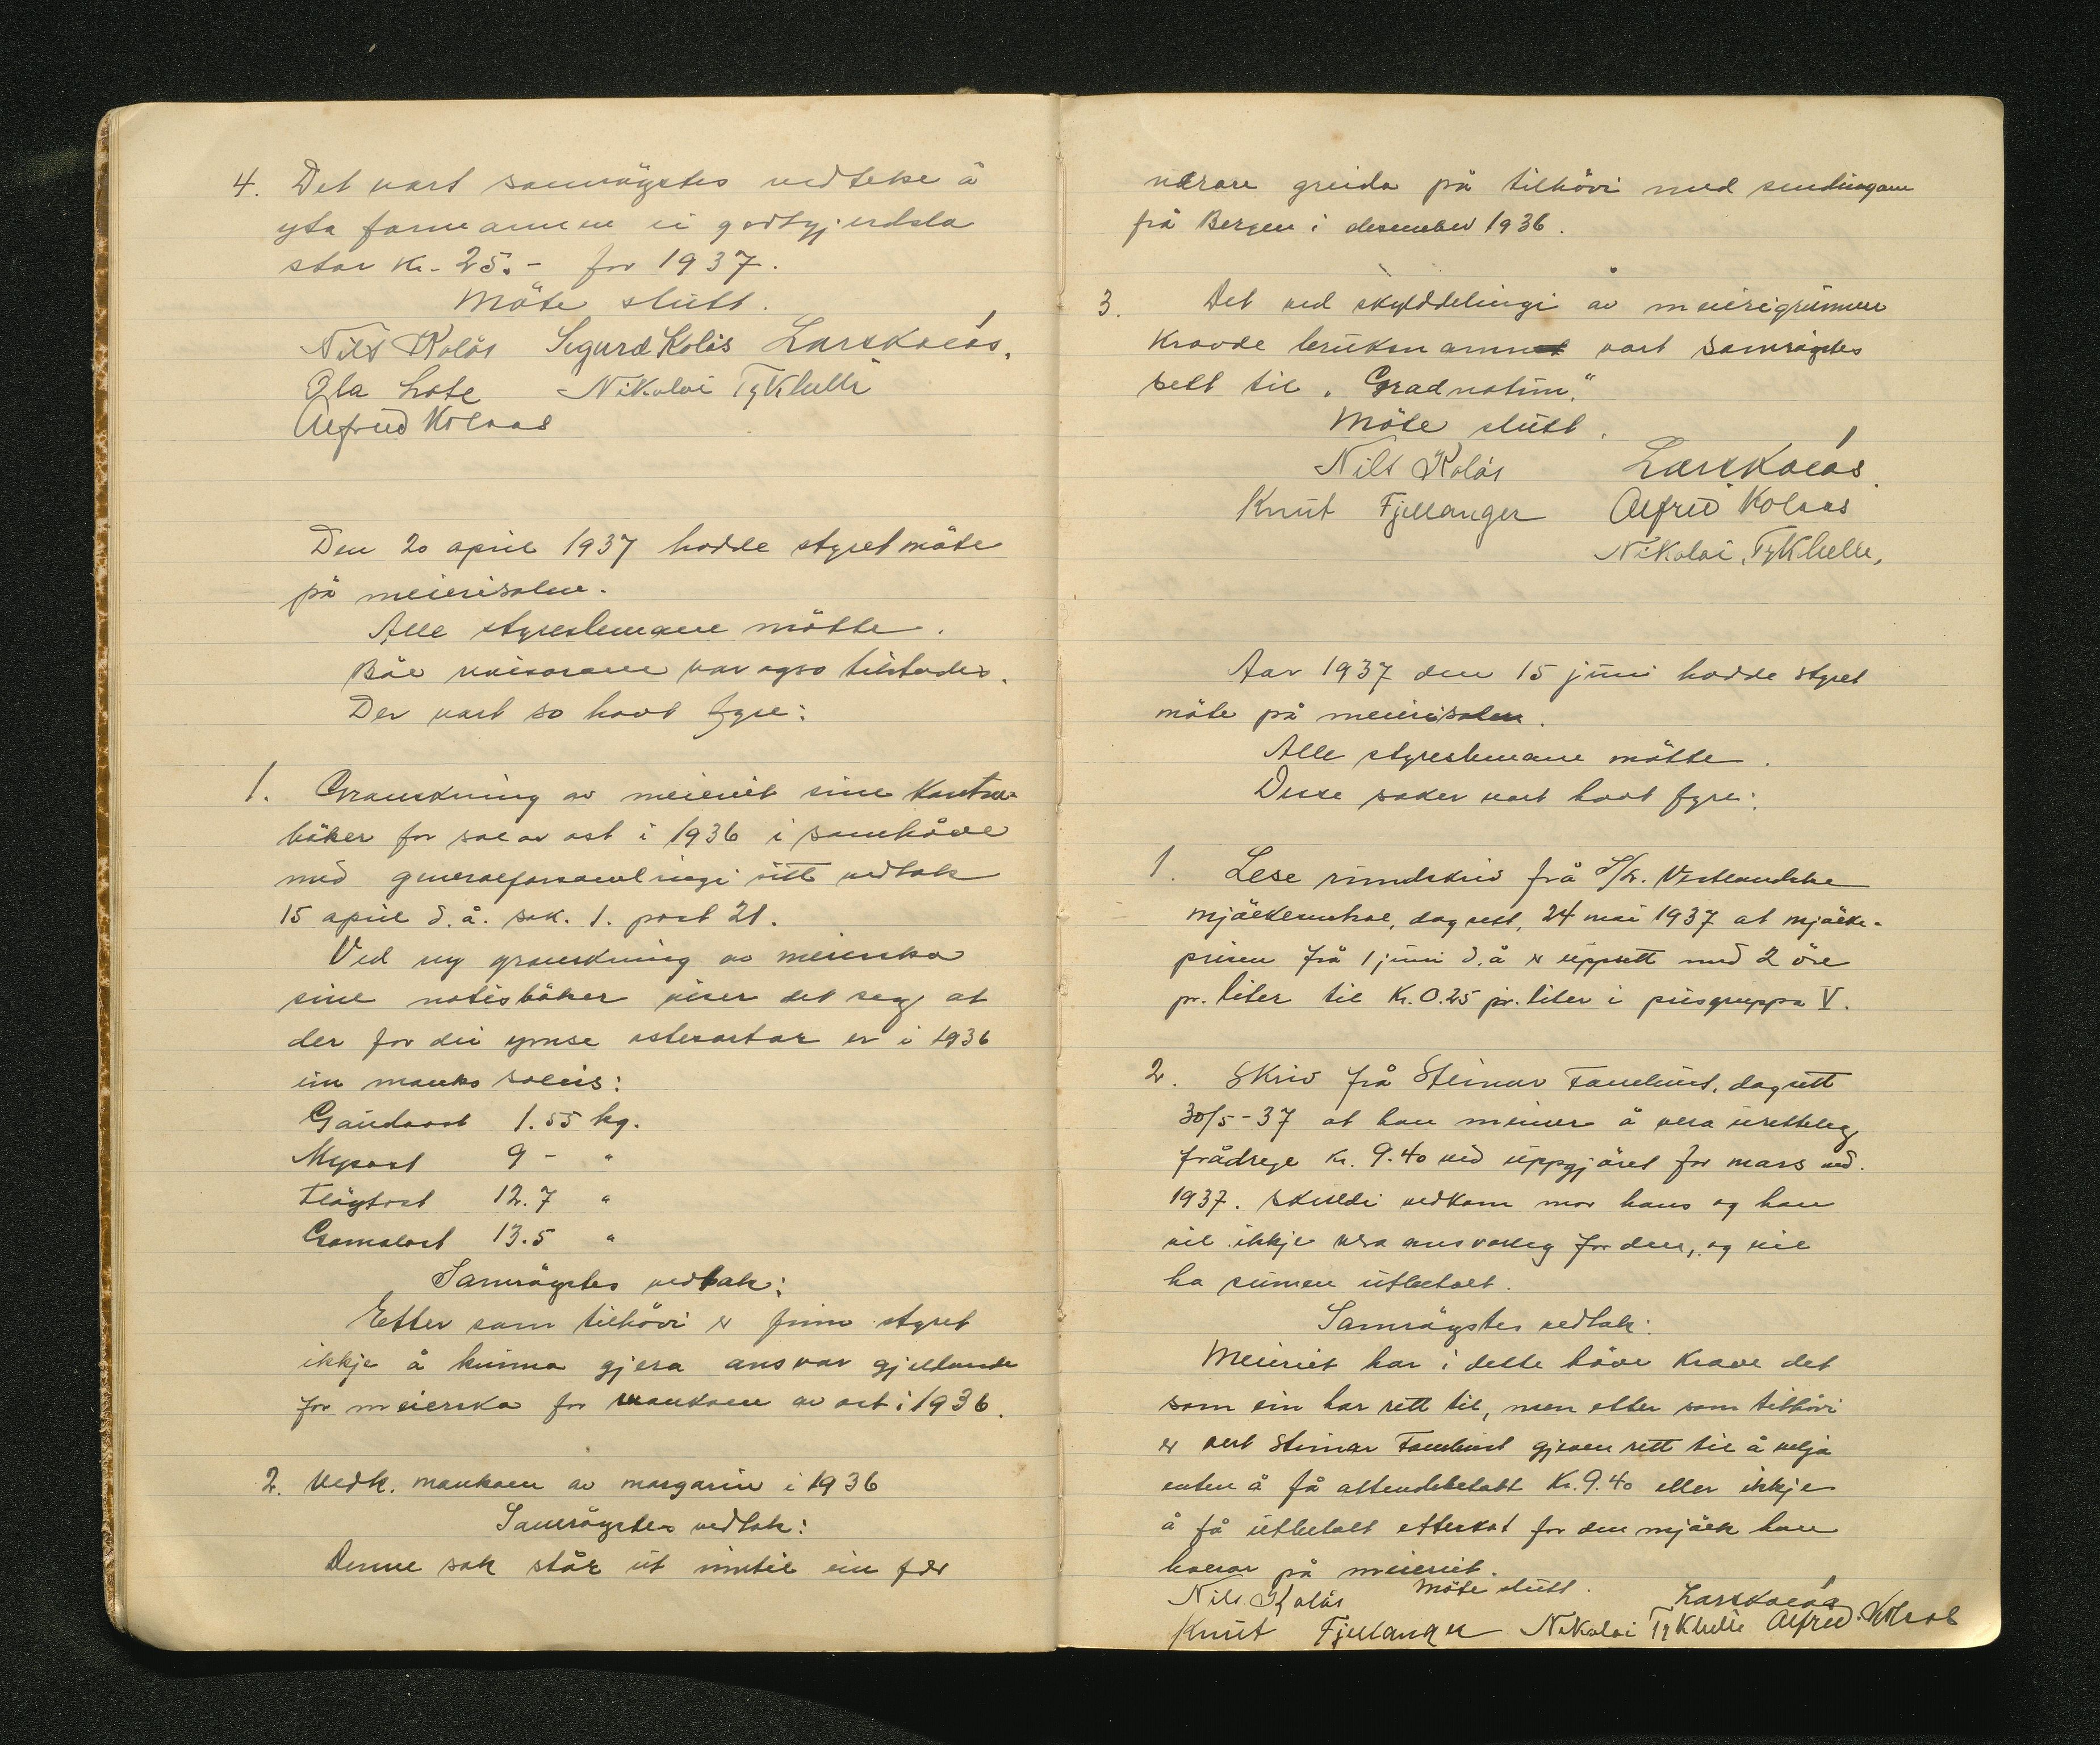 4. Det vart samröystes vedteke å
yta formannen ei godtgjerdsla
stor kr. 25.- for 1937.
Möte slutt.
Nils Kolås Sigurd Kolås Lars Kolås.
Ola Lote Nikolai Tykhelle
Alfred Kolaas
Den 20 april 1937 hadde styret möte
på meierisalen.
Alle styreslemane mötte.
Båe revisorane var ogso tilstades.
Der vart so havt fyre:
1. Granskning av meieriet sine kontra-
böker for sal av ost i 1936 i samhöve
med generalforsamlingi sitt vedtak
15 april d.å. sak. 1. post 21.
Ved ny granskning av meierska
sine notisböker viser det seg at
der for dei ymse osteartar er i 1936
ein manko soleis:
Gaudaost 1.55 kg.
Mysost 9 - "
Flöytost 12.7 "
Gamalost 13.5 "
Samröystes vedtak:
Etter som tilhövi er finn styret
ikkje å kunna gjera ansvar gjeldande
for meierska for mankoen av ost i 1936.
2. Vedk. mankoen av margarin i 1936
Samröystes vedtak:
Denne sak står ut inntil ein fær
nærare greida på tilhövi med sendingane
frå Bergen i desember 1936.
3. Det ved skylddelingi av meierigrunnen
kravde bruksnamnet vart samröystes
sett til "Gradnatun."
Möte slutt.
Nils Kolås Lars Kolås.
Knut Fjellanger Alfred Kolaas
Nikolai Tykhelle,
Aar 1937 den 15 juni hadde styret
möte på meierisalen.
Alle styreslemane mötte.
Desse saker vart havt fyre:
1. Lese rundskriv frå S/L. Vestlandske
mjölkesentral, dagsett, 24 mai 1937 at mjölke-
prisen frå 1 juni d.å er uppsett med 2 öre
pr. liter til Kr. 0.25 pr. liter i prisgruppa V.
2. Skriv frå Steinar dagsett
30/5-37 at han meiner å vera urettleg
frådrege kr. 9.40 ved uppgjöret for mars md.
1937. Skuldi vedkom mor hans og han
vil ikkje vera ansvarleg for den, og vil
ha sumen utbetalt.
Samröystes vedtak:
Meieriet har i dette höve krave det
som ein har rett til, men etter som tilhövi
er vert Steinar gjeven rett til å velja
enten å få attendebetalt Kr. 9.40 eller ikkje
å få utbetalt etterskot for den mjölk han
havar på meieriet.
Möte slutt.
Nils Kolås Lars Kolås
Knut Fjellanger Nikolai Tykhelle Alfred Kolaas